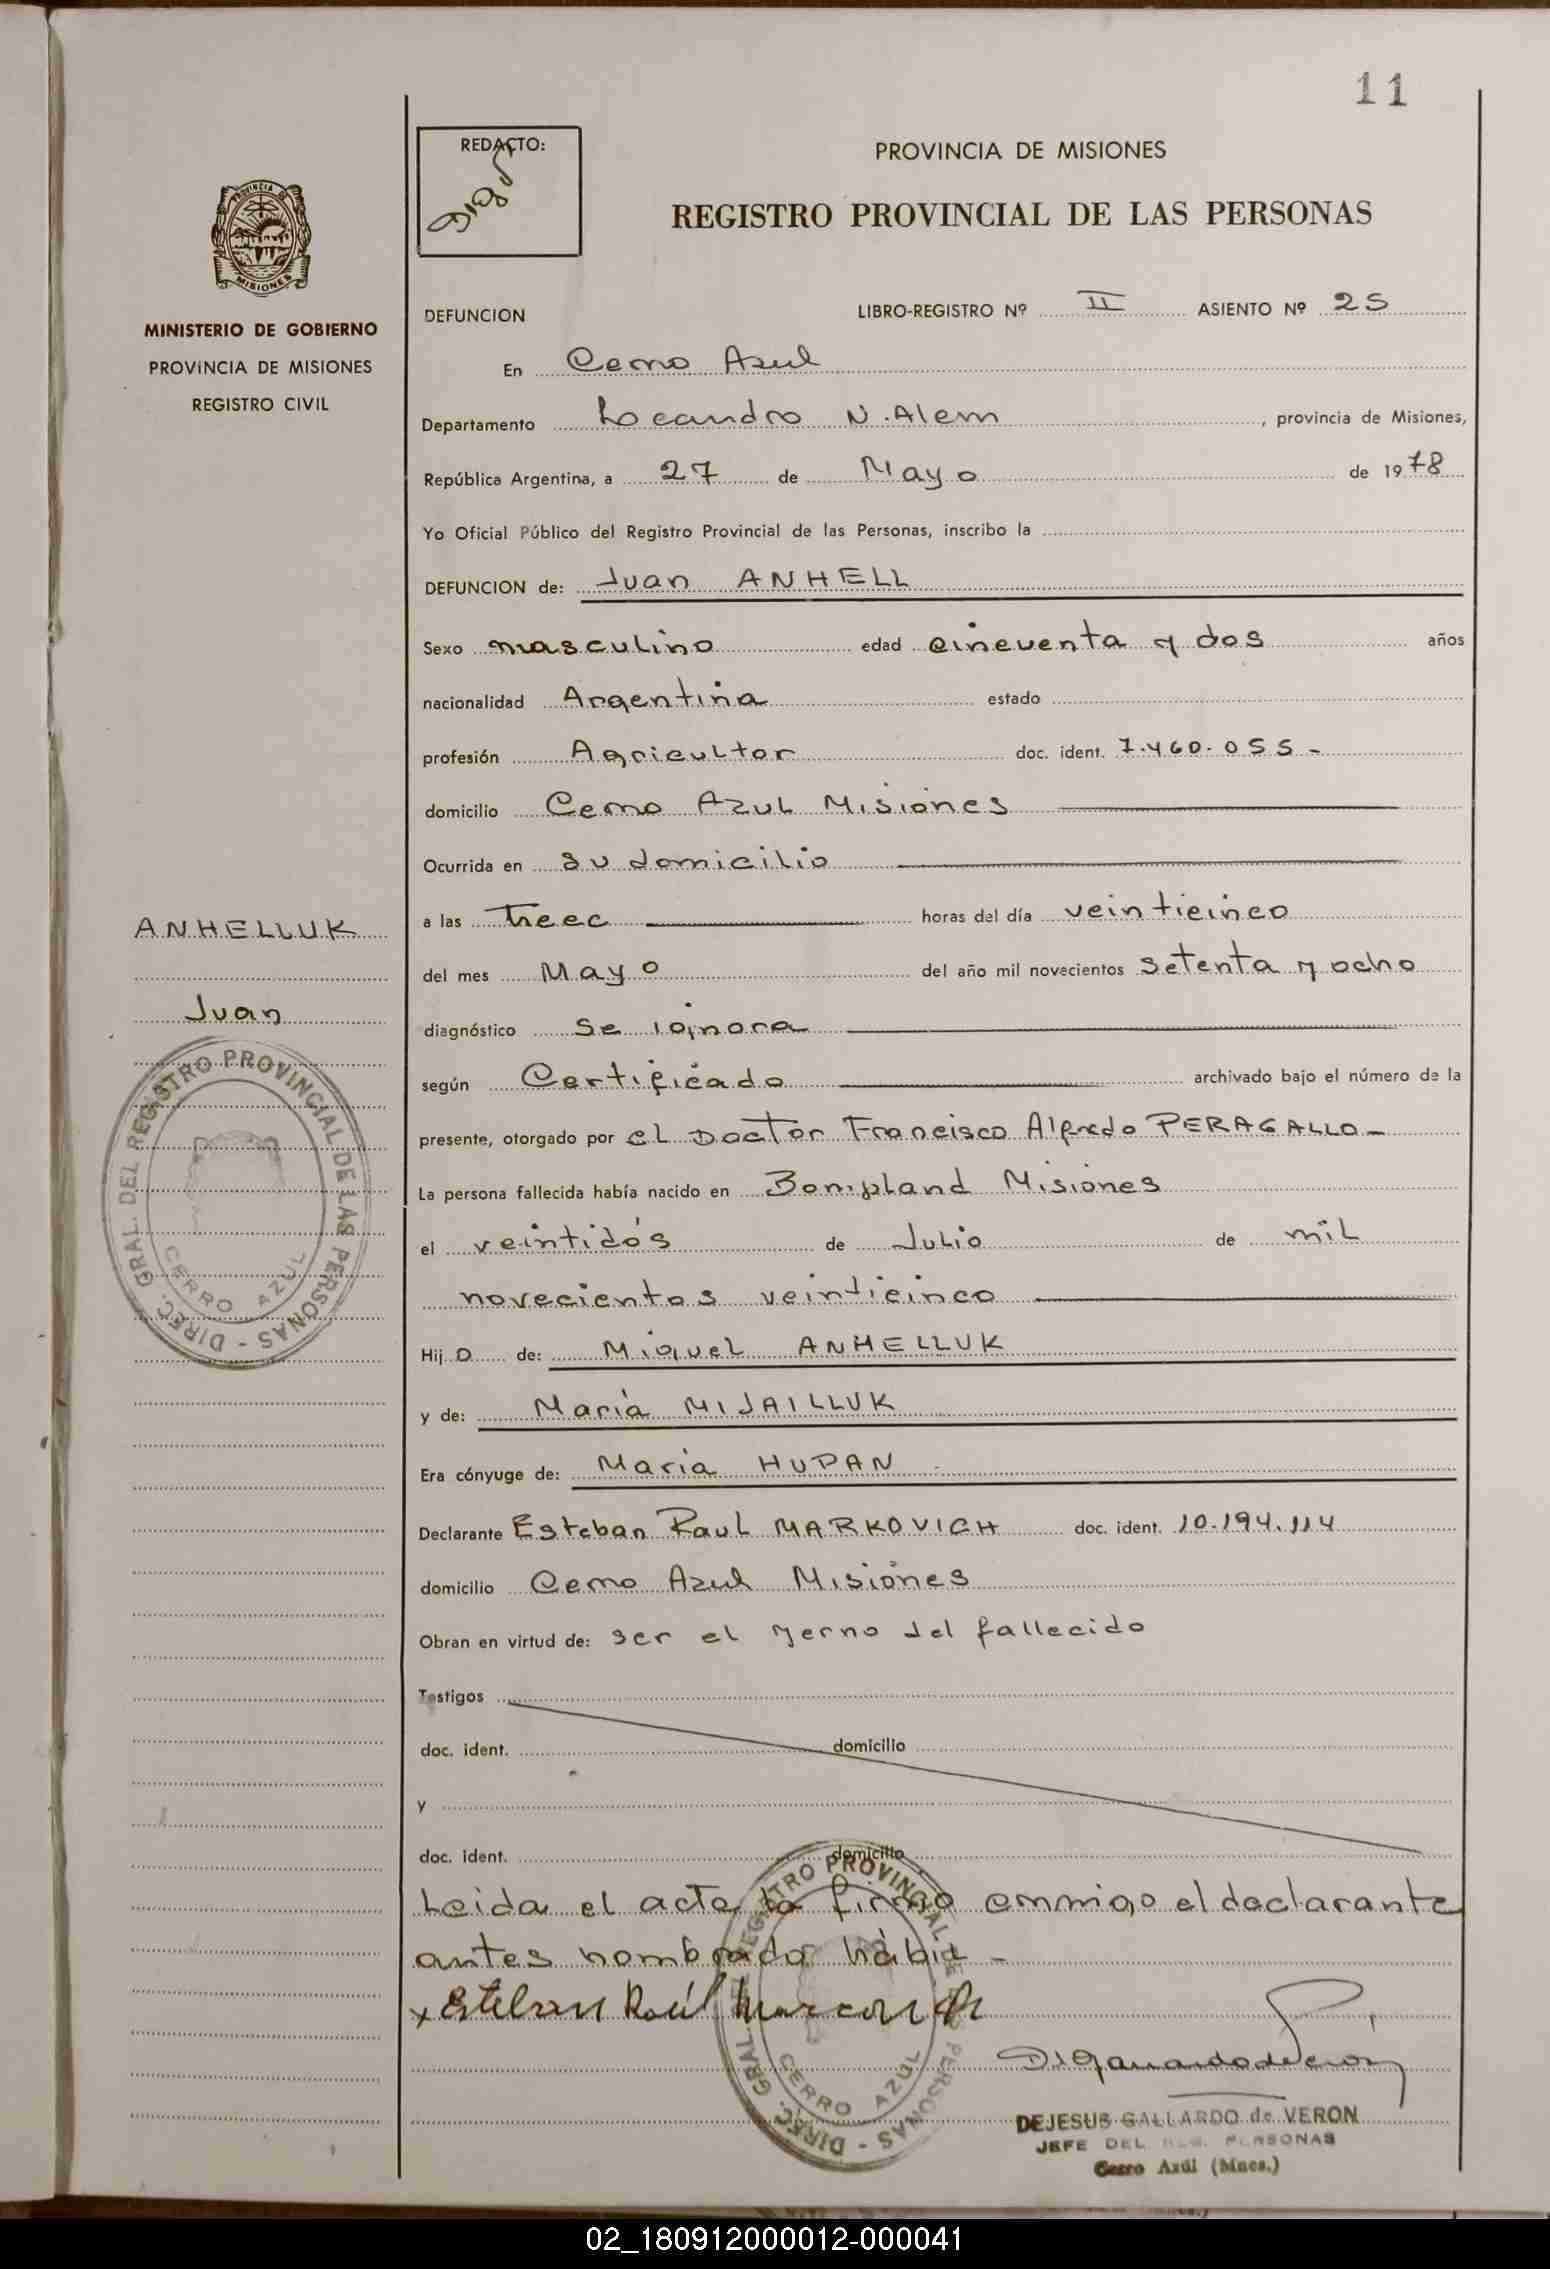 11
REDACTO:
PROVINCIA DE MISIONES
REGISTRO PROVINCIAL DE LAS PERSONAS
PROVINCIA DE
MISIONES
MINISTERIO DE GOBIERNO
PROVINCIA DE MISIONES
REGISTRO CIVIL
DEFUNCION LIBRO-REGISTRO Nº II ASIENTO Nº 25
En Cerro Azul
Departamento Leandro N. Alem, provincia de Misiones,
República Argentina, a 27 de Mayo de 1978
Yo Oficial Público del Registro Provincial de las Personas, inscribo la
DEFUNCION de: Juan ANHELL
Sexo masculino edad cincuenta y dos años
nacionalidad Argentina estado
profesión Agricultor doc. ident. 7.460.055-
domicilio Cerro Azul Misiones
Ocurrida en su domicilio
a las trece horas del día veinticinco
del mes Mayo del año mil novecientos setenta y ocho
diagnóstico se ignora
según Certificado archivado bajo el número de la
presente, otorgado por el Doctor Francisco Alfredo PERAGALLO-
La persona fallecida había nacido en Bonpland Misiones
el veintidós de Julio de mil
novecientos veinticinco
Hijo de: Miguel ANHELLUK
y de: María MIJAILLUK
Era cónyuge de: María HUPAN
Declarante Esteban Raul MARKOVICH doc. ident. 10.194.114
domicilio Cerro Azul Misiones
Obran en virtud de: ser el yerno del fallecido
Testigos
doc. ident. domicilio
y
doc. ident. domicilio
Leida el acta la firma conmigo el declarante
antes nombrado hábil-
x Esteban Raúl
ANHELLUK
Juan
DIREC. GRAL. DEL REGISTRO PROVINCIAL DE LAS PERSONAS -
CERRO AZUL
DIREC. GRAL. REGISTRO PROVINCIAL DE PERSONAS -
CERRO AZUL
DEJESUS GALLARDO de VERON
JEFE DEL REG. PERSONAS
Cerro Azúl (Mnes.)
02_180912000012-000041